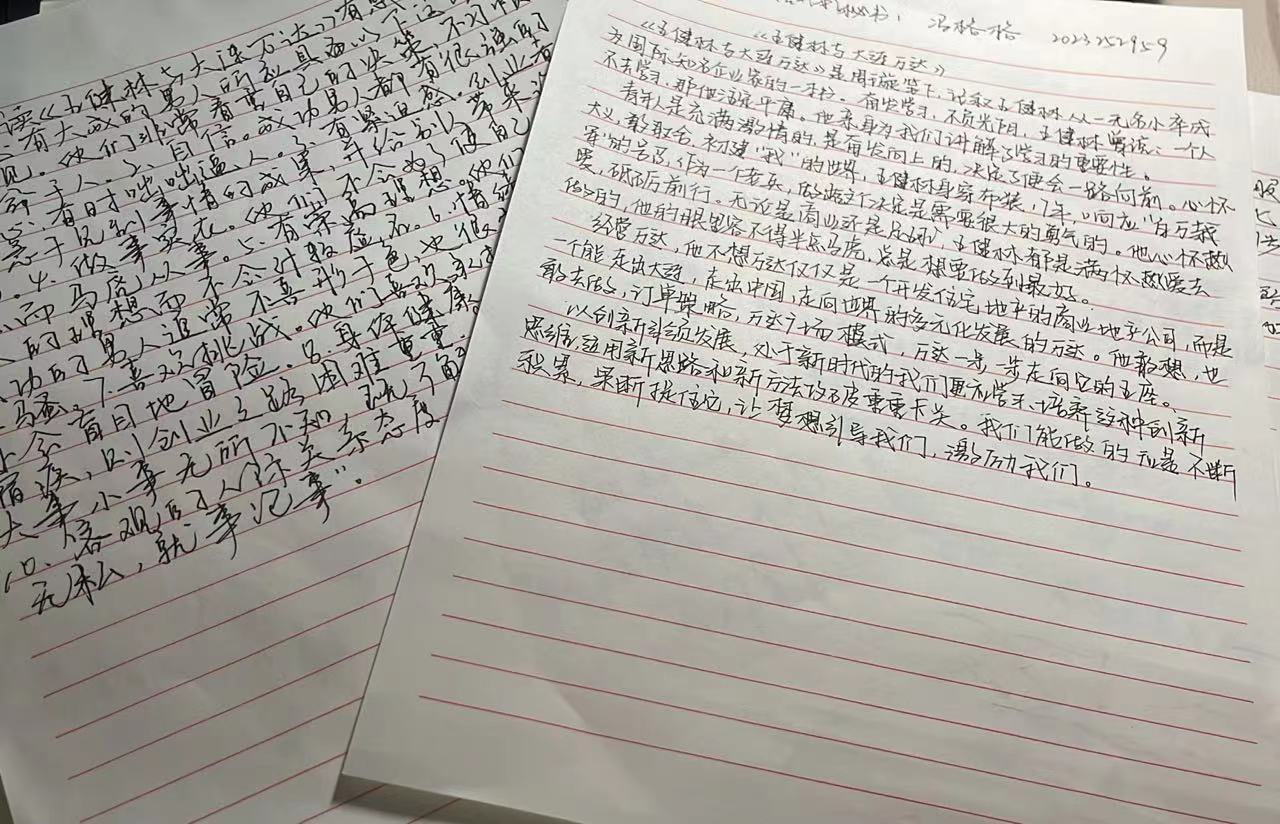 读《王健林与大连万达》有
有大成的男人所
他们非常看重自己的决策，不对
命于人。2、自信。成功男人都有很强的
有时咄咄逼人。3、有紧迫感。创业者
急于见到事情的成果，并给别人带来
4、做事实在。他们不会为了使自己
而马虎从事。5、有崇高理想。他们
的理想而不会计较虚名。6、情绪
功的男人通常不喜形于色，也很
骚。7、喜欢挑战。他们喜欢承
不会盲目地冒险。8、身体健康
宿疾，则创业之路困难重重
大事小事无所不知，既了解
10、客观的人际关系态度
无私，就事论事”。
秘书：冯格格 2023252959
《王健林与大连万达》
《王健林与大连万达》是周璇笔下，记叙王健林从一无名小卒成
为国际知名企业家的一书。奋发学习，不负光阴，王健林曾说：一个人
不去学习，那他注定平庸。他亲身为我们讲解了学习的重要性。
青年人是充满激情的，是奋发向上的，决定了便会一路向前。心怀
大义，敢取舍，初建“我”的世界，王健林身穿布装，17年，响应“百万裁
军”的号召，作为一个老兵，做出这个决定是需要很大的勇气的。他心怀热
爱，砥砺前行。无论是商业还是足球，王健林都是满怀热爱去
做的，他的眼里容不得半点马虎，总是想要做到最好。
经营万达，他不想万达仅仅是一个开发住宅地产的商业地产公司，而是
一个能走出大连，走出中国，走向世界的多元化发展的万达。他敢想，也
敢去做，订单策略，万达广场模式，万达一步一步走向它的王座。
以创新引领发展，处于新时代的我们更应学习、培养这种创新
思维，运用新思路和新方法攻破重重关头。我们能做的就是不断
积累，果断抓住它，让梦想引导我们，激励我们。